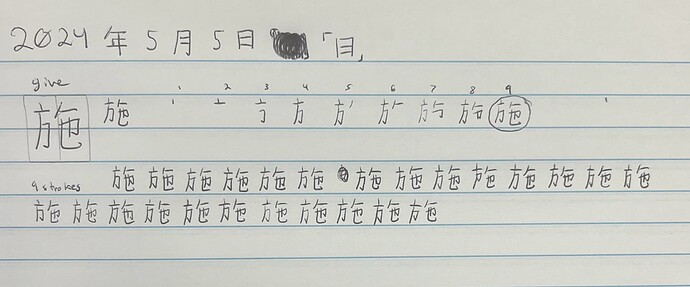 2024 年 5 月 5 日 「日」
give 1 2 3 4 5 6 7 8 9
施 施 丶 亠 方 施
9 strokes 施 施 施 施 施 施 施 施 施 施 施 施 施 施
施 施 施 施 施 施 施 施 施 施 施